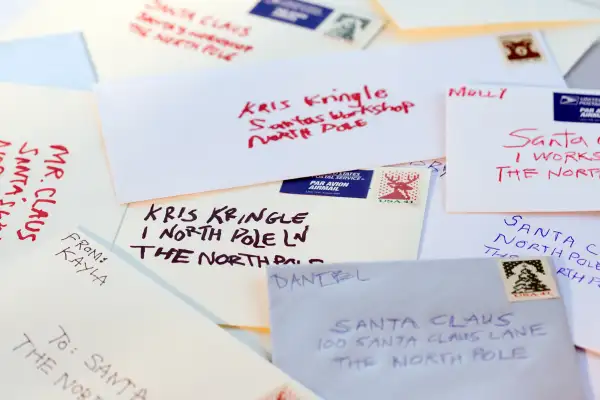 SANTA CLAUS
SANTA'S WORKSHOP
THE NORTH POLE
KRIS KRINGLE
SANTAS WORKSHOP
NORTH POLE
MOLLY
UNITED STATES
PAR AV
AIRMA
SANTA C
1 WORKS
THE NORT
MR. CLAUS
SANTA'S
POSTAL SERVICE
PAR AVION
AIRMAIL
USA 41
KRIS KRINGLE
1 NORTH POLE LN
THE NORTH POLE
SANTA C
NORTH PO
THE NORTH P
FROM:
KAYLA
TO: SANTA
THE NOR
DANIEL
USA 41
SANTA CLAUS
100 SANTA CLAUS LANE
THE NORTH POLE